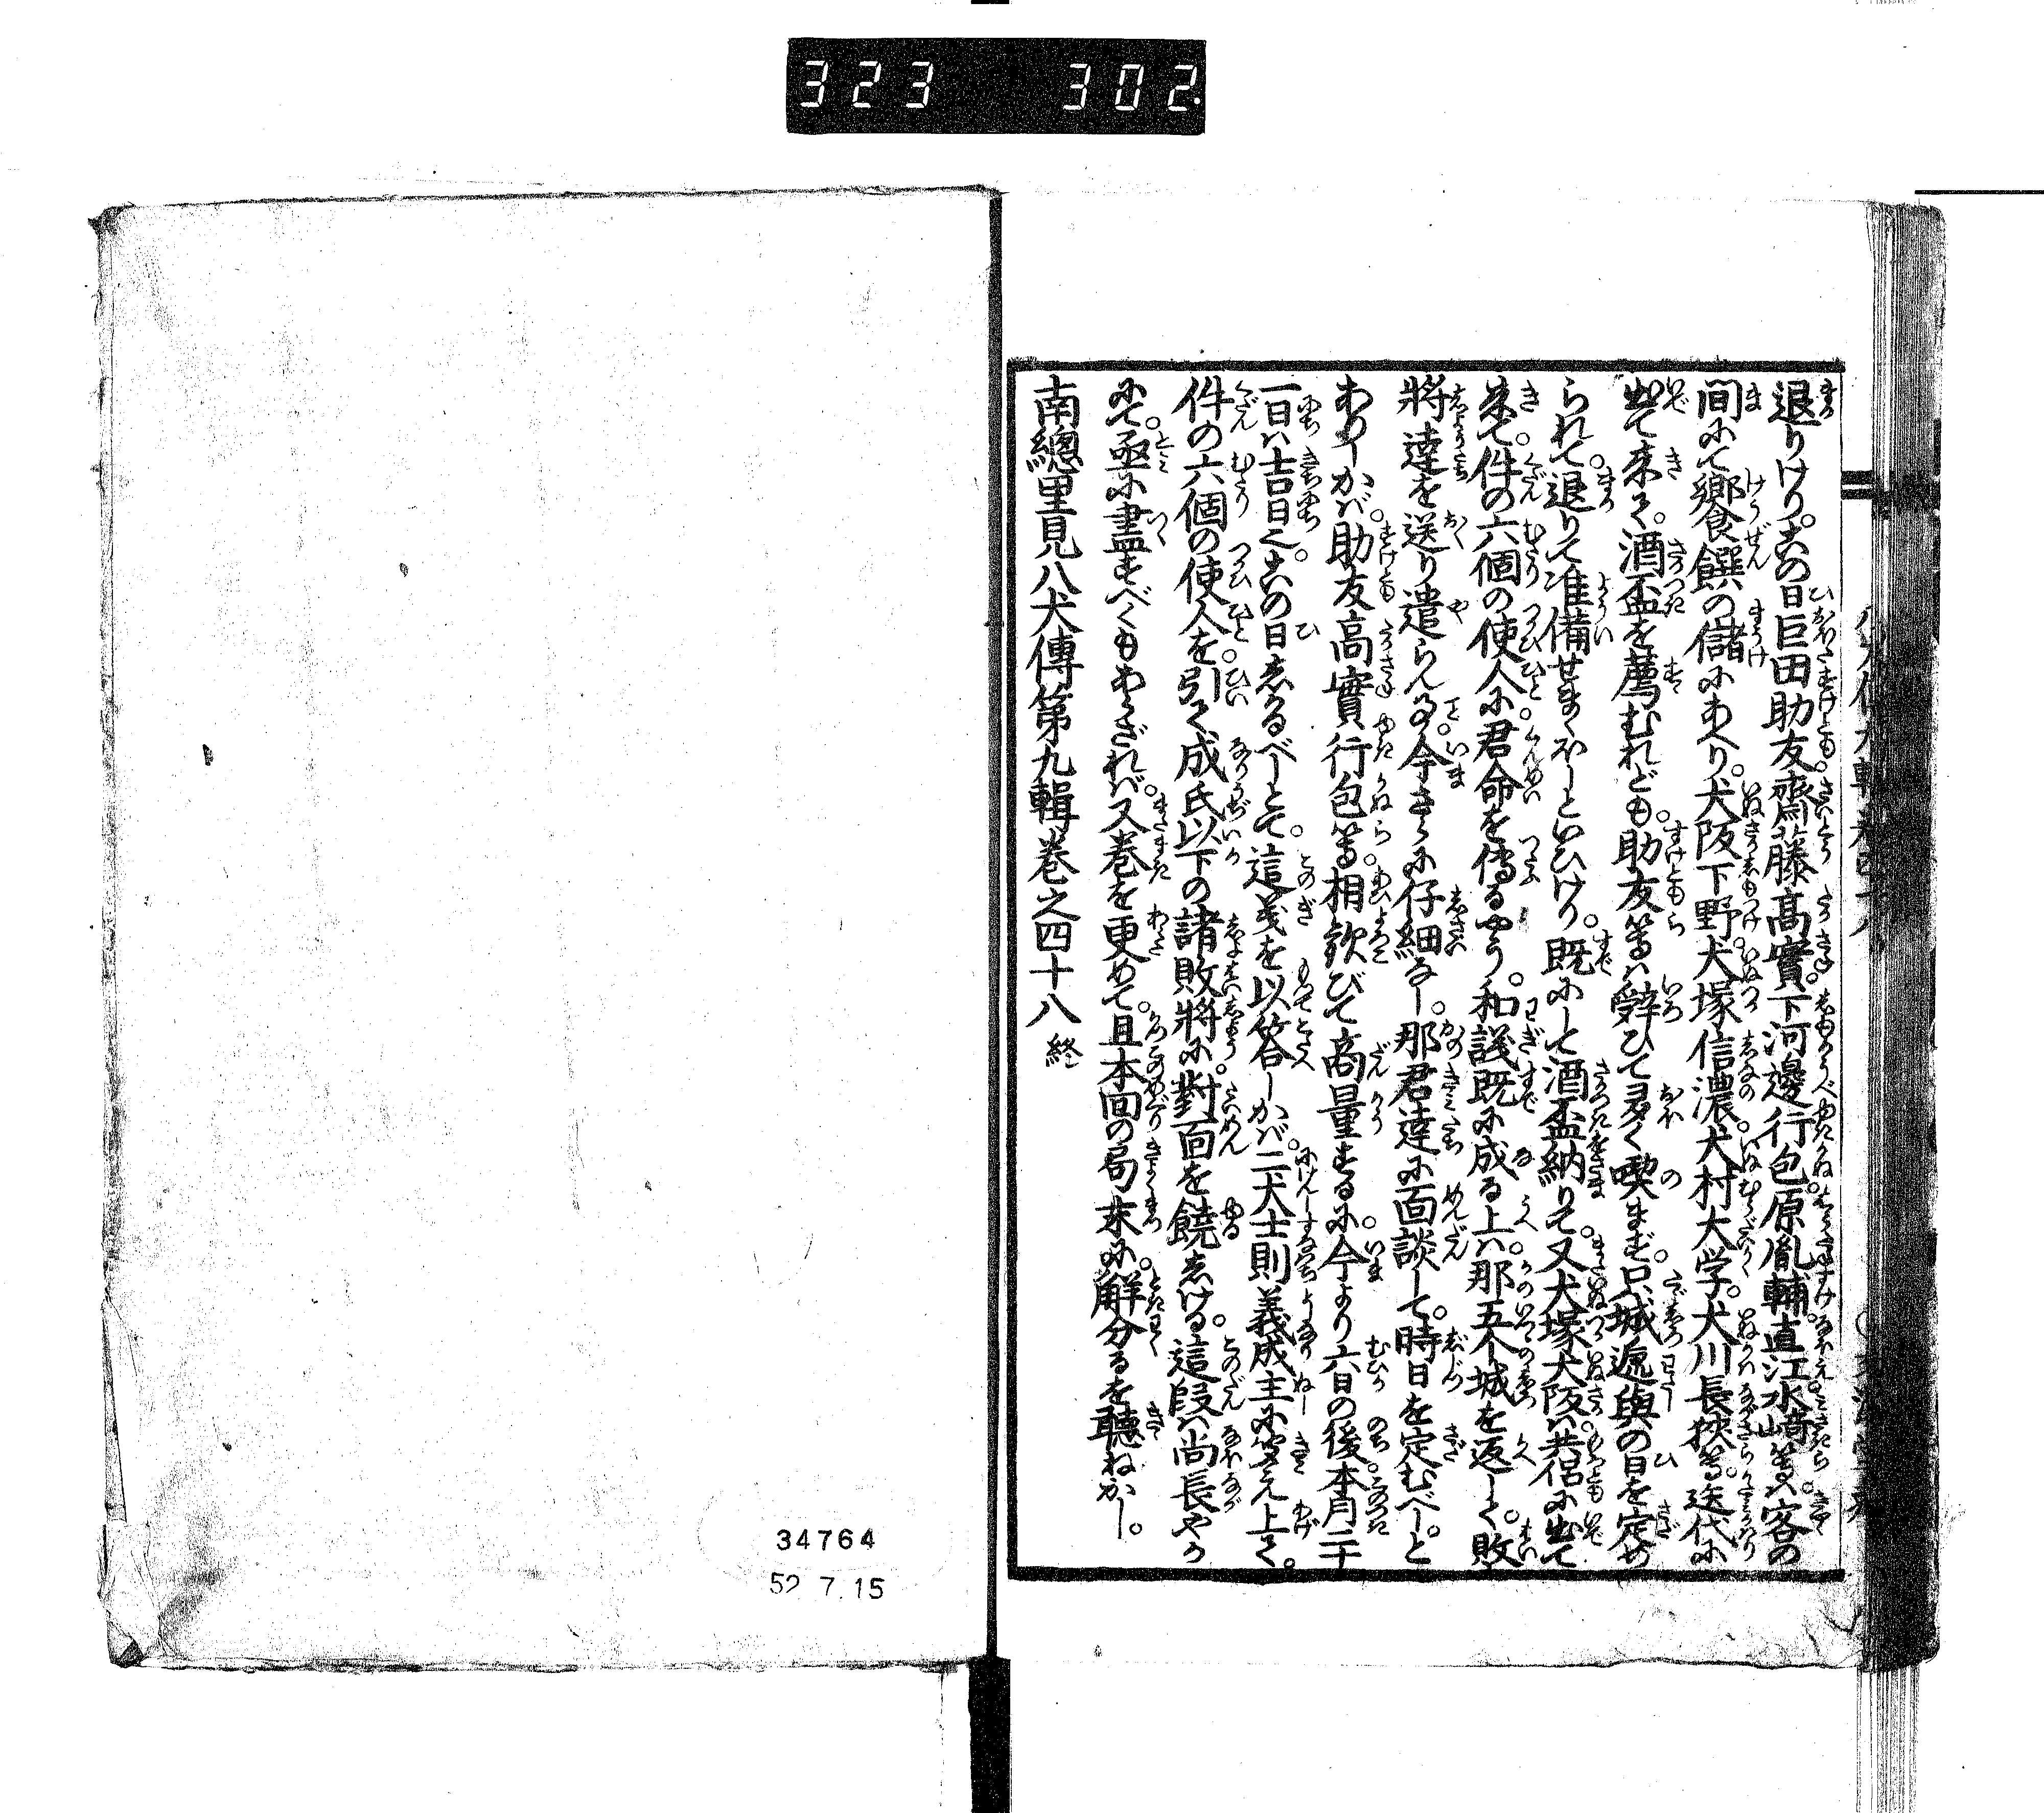 323 302
退りけり。この日巨田助友。齋藤高實。下河邊行包。原胤輔。直江水﨑等ハ。客の
間にて饗饌の儲にあへり。犬阪下野。犬塚信濃。犬村大学。犬川長狹等。迭代に
出て来て。酒盃を薦むれども。助友等ハ辞ひて多く喫まず。只城逓與の日を定め
られて。退りて准備せまくほしといひけり。既にして酒盃納りて。又犬塚犬阪ハ共侶に出て
来て。件の六個の使人に君命を傳るやう。和議既に成る上ハ。那五个城を返して。敗
將達を送り遣らん事。今さらに仔細なし。那君達に面談して。時日を定むべし。と
ありしかバ。助友高實行包等。相歓びて商量するに。今より六日の後。本月二十
一日ハ吉日也。この日しかるべしとて。這義を以答しかバ。二犬士則義成主に聞え上て。
件の六個の使人を引て。成氏以下の諸敗將に。對面を饒しける。這段ハ尚長やか
にて。亟に盡すべくもあらざれバ。又巻を更めて。且本回の局末に。解分るを聽ねかし。
南總里見八犬傳第九輯巻之四十八 終
34764
52 7.15